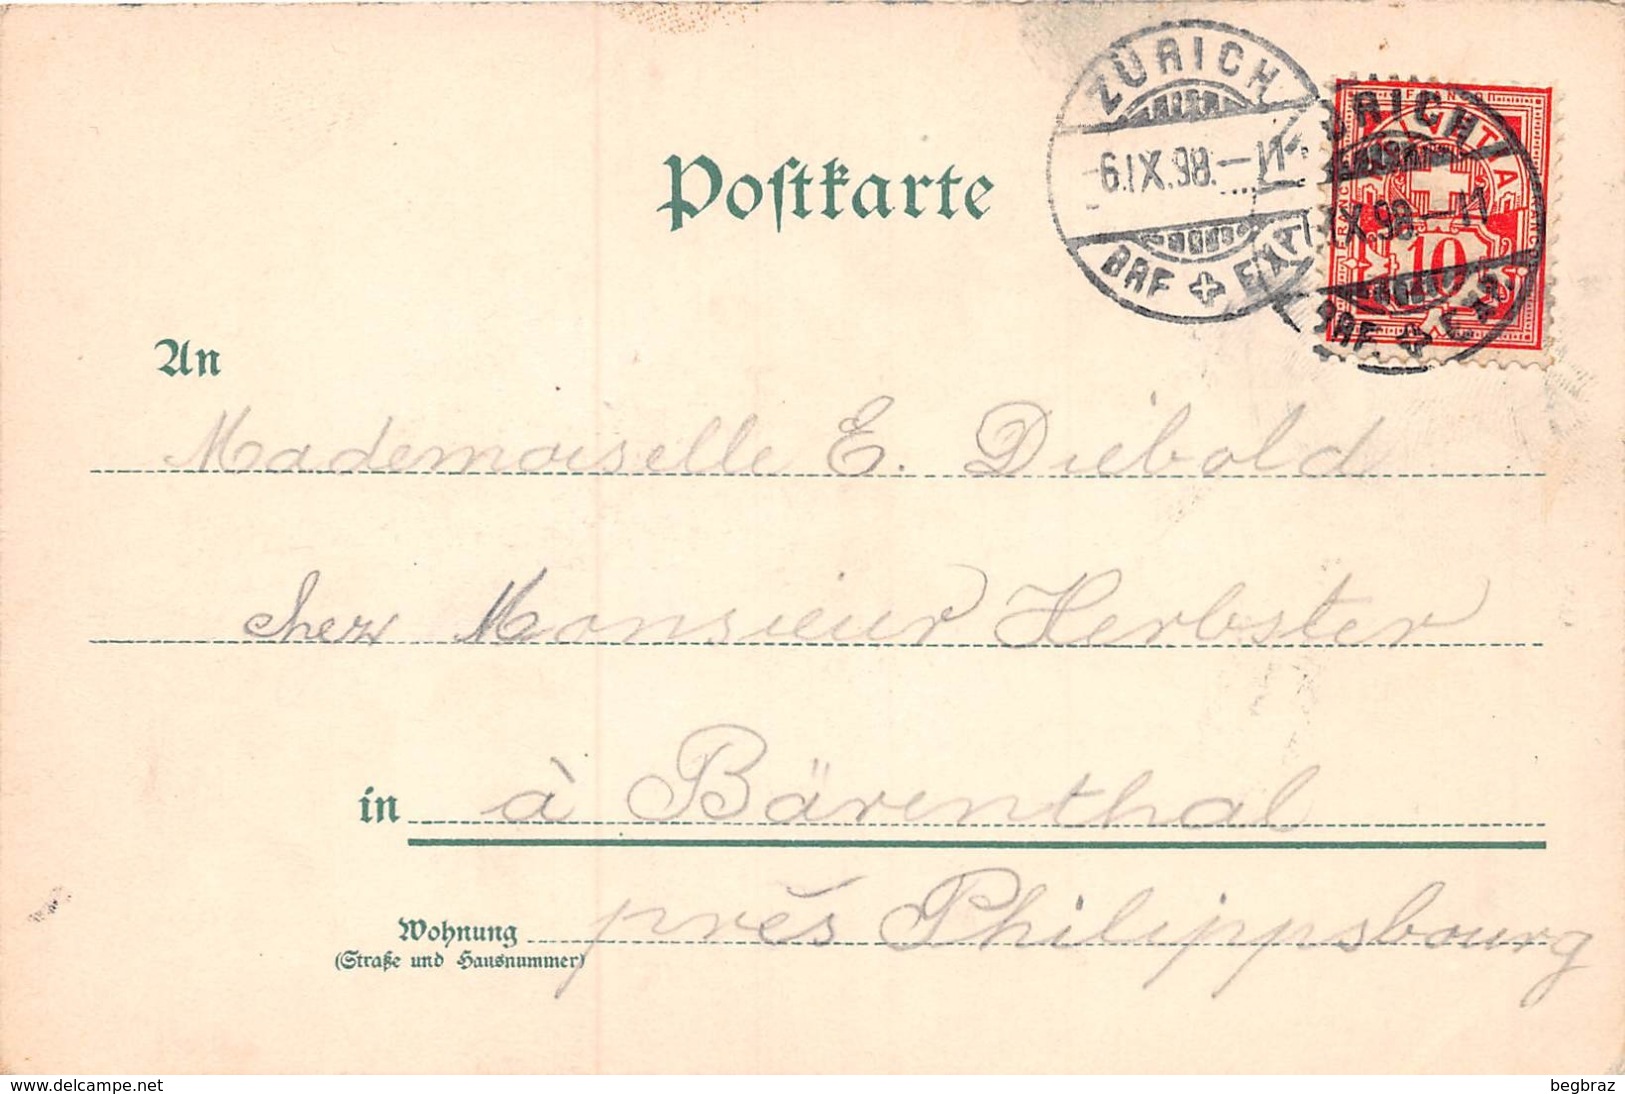 Postkarte
ZÜRICH
-6.IX.98.-11
BRF. EXP.
FRANCO
HELVETIA
10
An
Mademoiselle E. Diebold
chez Monsieur Herbster
in à Bärenthal
Wohnung près Philippsbourg
(Straße und Hausnummer)
www.delcampe.net
begbraz